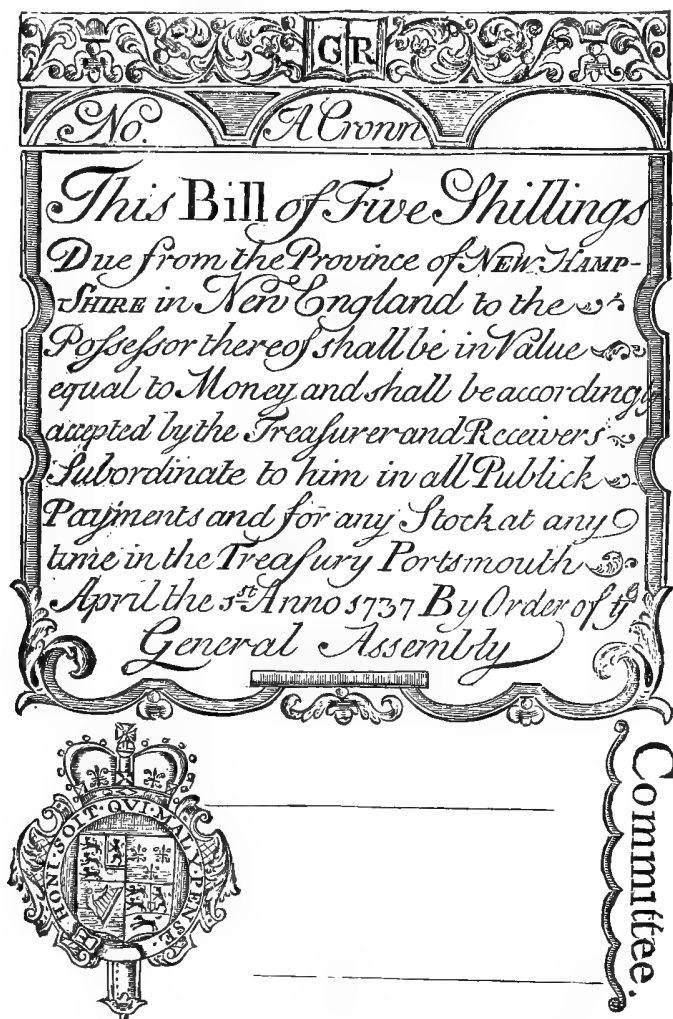 GR
No. A Crown
This Bill of Five Shillings
Due from the Province of NEW HAMP-
SHIRE in New England to the
Poſseſsor thereof shall be in Value
equal to Money and shall be accordingly
accepted by the Treaſurer and Receivers
Subordinate to him in all Publick
Payments and for any Stock at any
time in the Treaſury Portsmouth
April the 1st Anno 1737 By Order of ye
General Assembly
Committee.
HONI·SOIT·QVI·MAL·Y·PENSE·